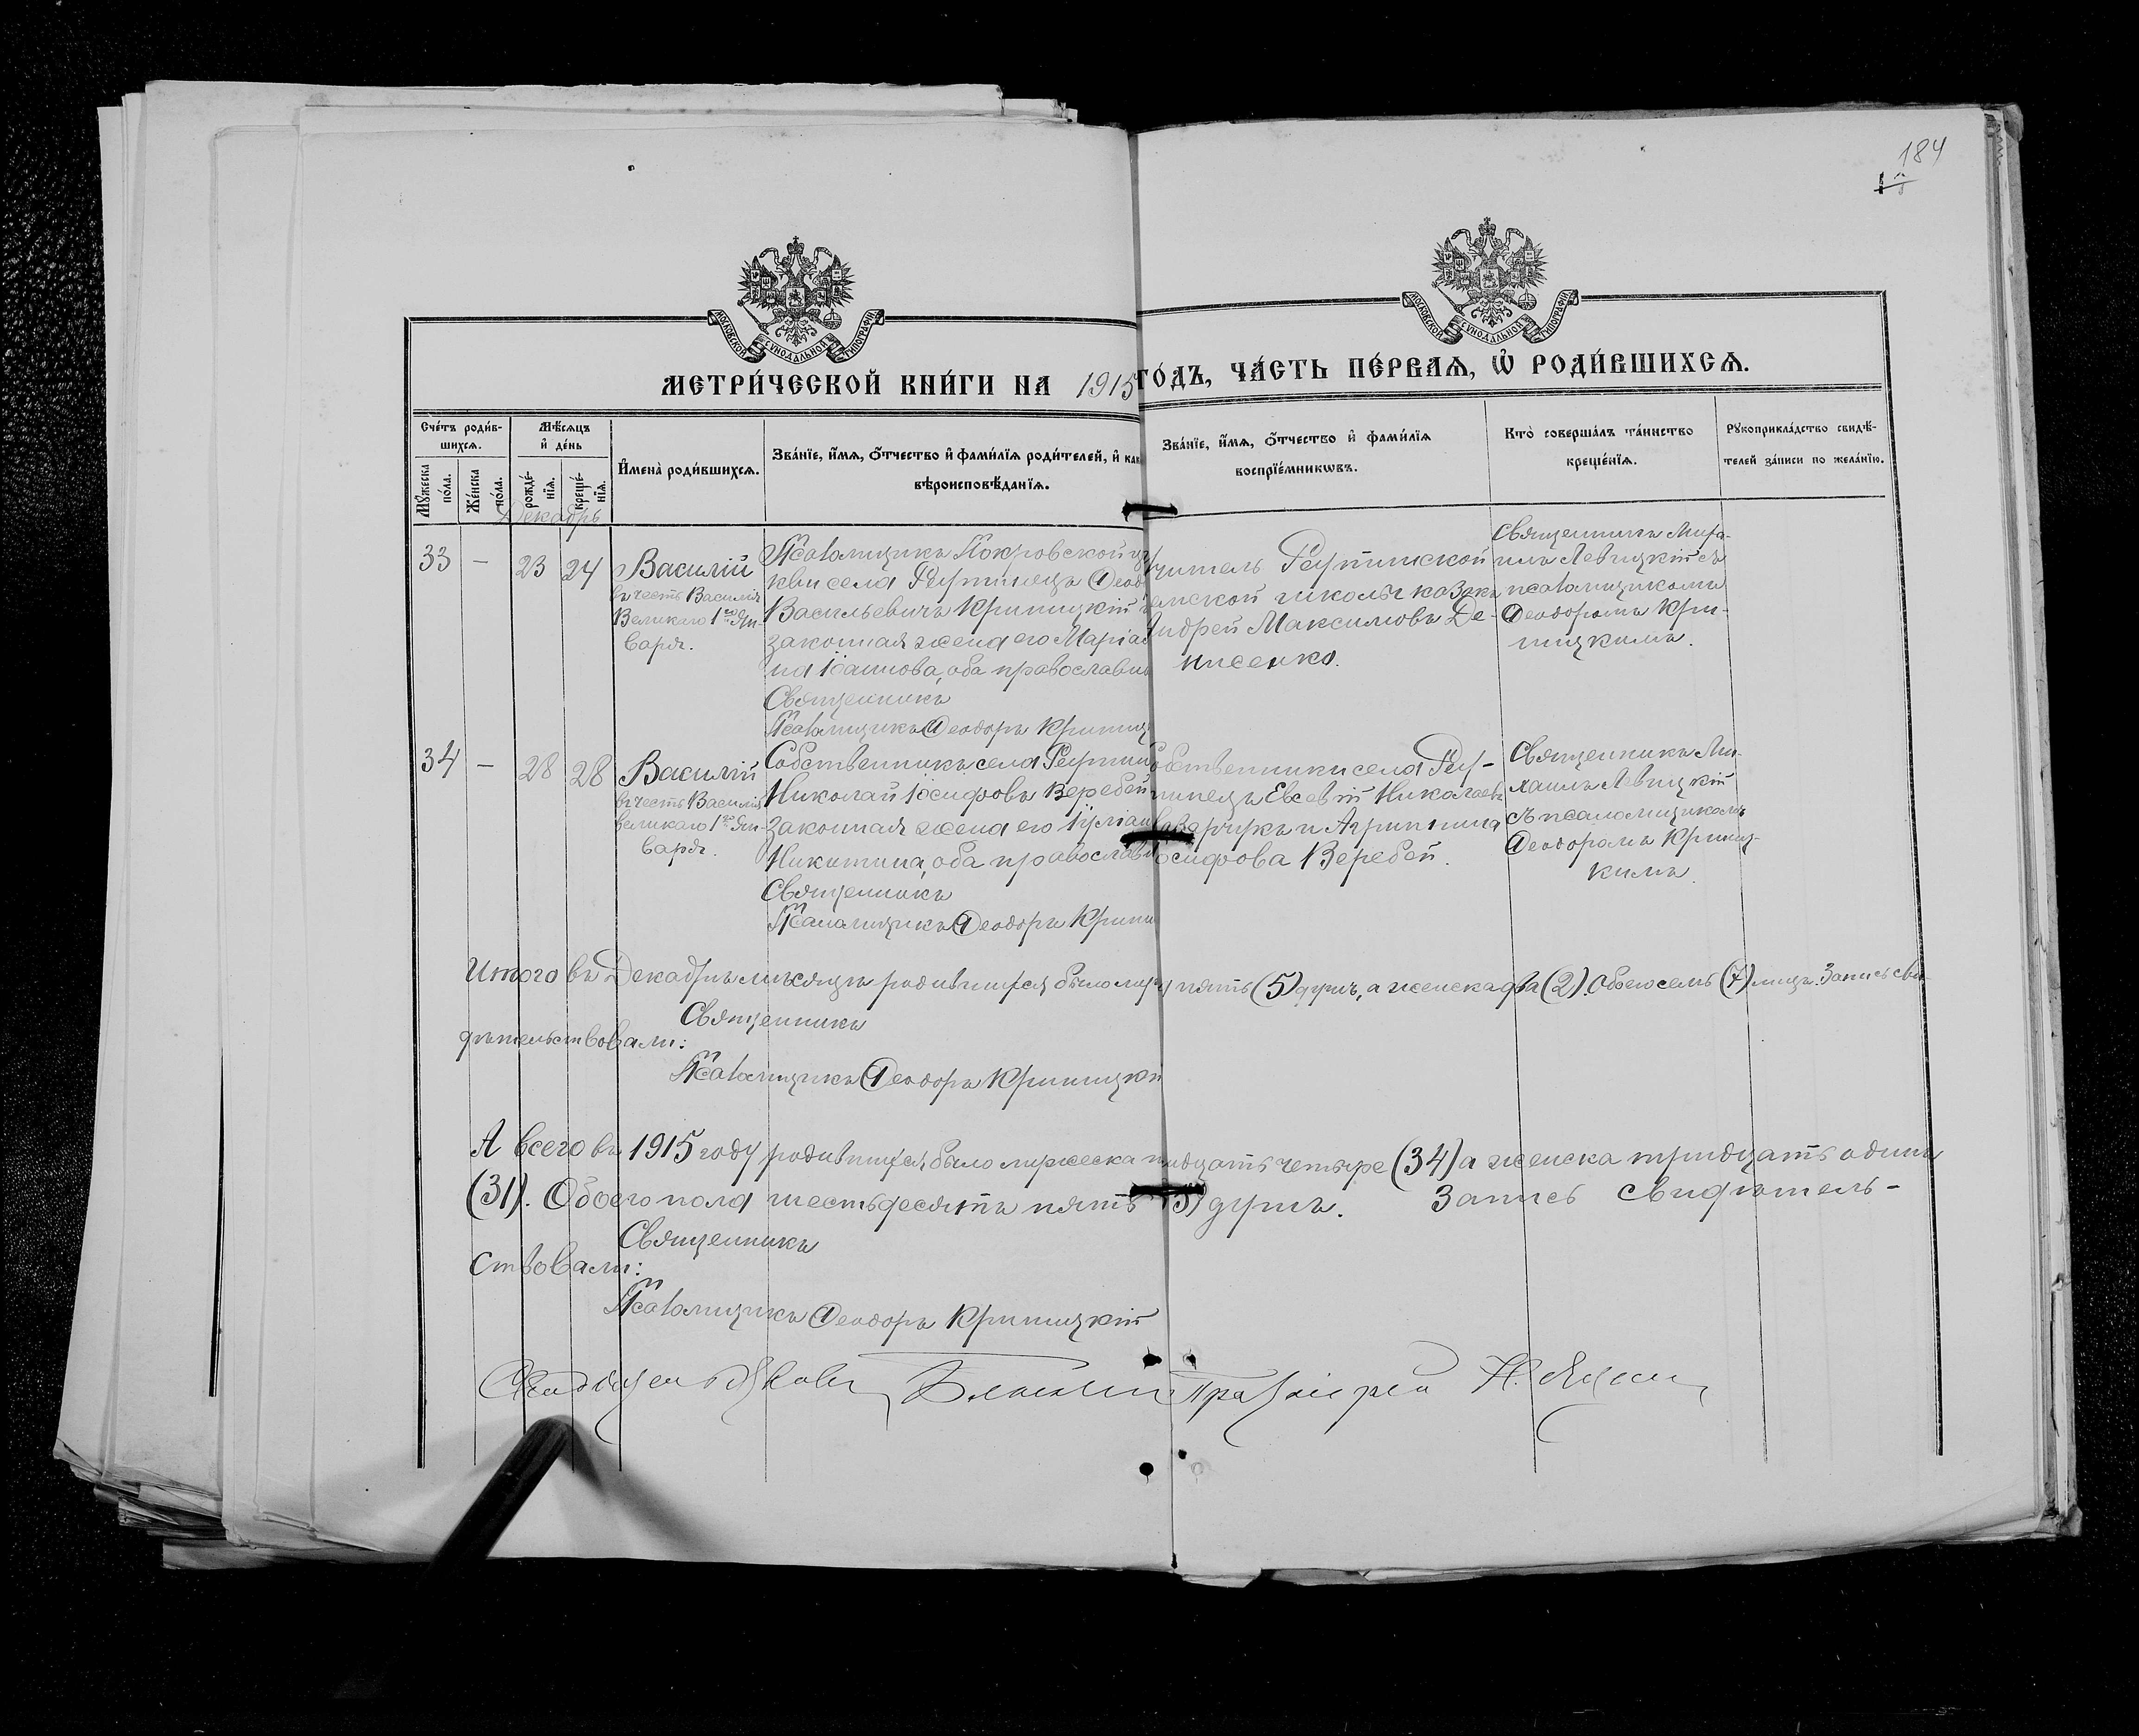 184
МОСКОВСКОЙ СУНОДАЛЬНОЙ ТИПОГРАФІИ
МОСКОВСКОЙ СУНОДАЛЬНОЙ ТИПОГРАФІИ
МЕТРИ́ЧЕСКОЙ КНИ́ГИ НА 1915
ГО́ДЪ, ЧА́СТЬ ПЕ́РВАЯ, Ѽ РОДИ́ВШИХСЯ.
Сче́тъ роди́в-
шихся.
Мѣ́сяцъ
и҆ де́нь
Мꙋ́жеска
по́ла.
Же́нска
по́ла.
рожде́-
нїя.
креще́-
нїя.
И҆мена̀ роди́вшихся.
Зва́нїе, и҆́мя, ѻ҆́тчество и҆ фами́лїя роди́телей, и҆ как
вѣроисповѣ́данїя.
Зва́нїе, и҆́мя, ѻ҆́тчество и҆ фами́лїя
воспрїе́мникѡвъ.
Кто̀ соверша́лъ та́инство
креще́нїя.
Рꙋкоприкла́дство свидѣ́-
телей за́писи по жела́нїю.
Декабрь
33 — 23 24
Василій
въ честь Василія
Великаго 1го Ян-
варя.
Псаломщикъ Покровской це
кви села Реутинецъ Ѳеод
Васильевичъ Криницкій
законная жена его Маріа
на Іоаннова, оба православн
Священникъ
Псаломщикъ Ѳеодоръ Криниц
читель Реутинской
земской школы козакъ
Андрей Максимовъ Де-
нисенко.
Священникъ Миха-
илъ Левицкій съ
псаломщикомъ
Ѳеодоромъ Кри-
ницкимъ.
34 — 28 28
Василій
въ честь Василія
великаго 1го Ян-
варя.
Собственникъ села Реутин
Николай Іосифовъ Веребей
законная жена его Іуліан
Никитина, оба православн
Священникъ
Псаломщикъ Ѳеодоръ Крини
обственники села Реу-
тинецъ Евсевій Николаевъ
и Агриппина
осифова Веребей.
Священникъ Ми-
хаилъ Левицкій
съ псаломщикомъ
Ѳеодоромъ Криниц-
кимъ.
Итого въ Декабрѣ мѣсяцѣ родившихся было муж пять (5) душъ, а женска два (2). Обоего семь (7) лицъ. Запись сви-
дѣтельствовали:
Священникъ
Псаломщикъ Ѳеодоръ Криницкі
А всего въ 1915 году родившихся было мужеска идцать четыре (34) а женска тридцать одинъ
(31). Обоего пола шестьдесятъ пять 5) душъ. Запись свидѣтель-
ствовали:
Священникъ
Псаломщикъ Ѳеодоръ Криницкій